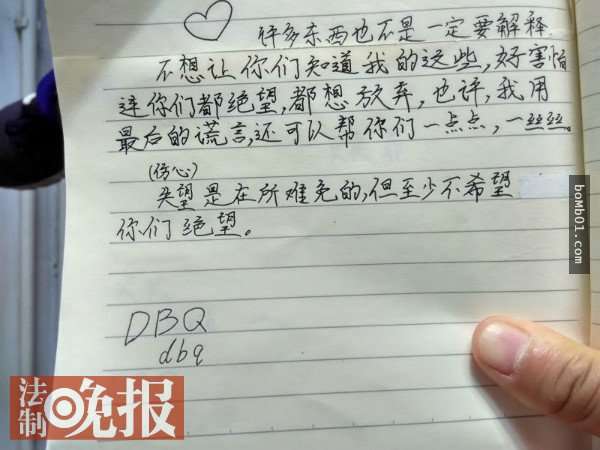 许多东西也不是一定要解释
不想让你们知道我的这些,好害怕
连你们都绝望,都想放弃,也许,我用
最后的谎言,还可以帮你们一点点,一丝丝。
(伤心)
失望是在所难免的,但至少不希望
你们绝望。
DBQ
dbq
法制晚报
bomb01.com